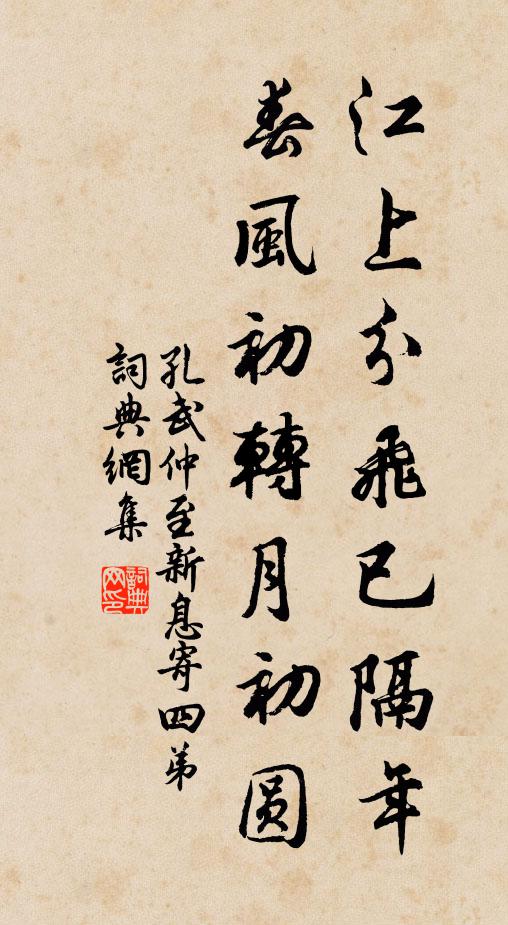 江上分飛已隔年
春風初轉月初圆
孔武仲至新息寄四弟
詞典網集
詞典網印